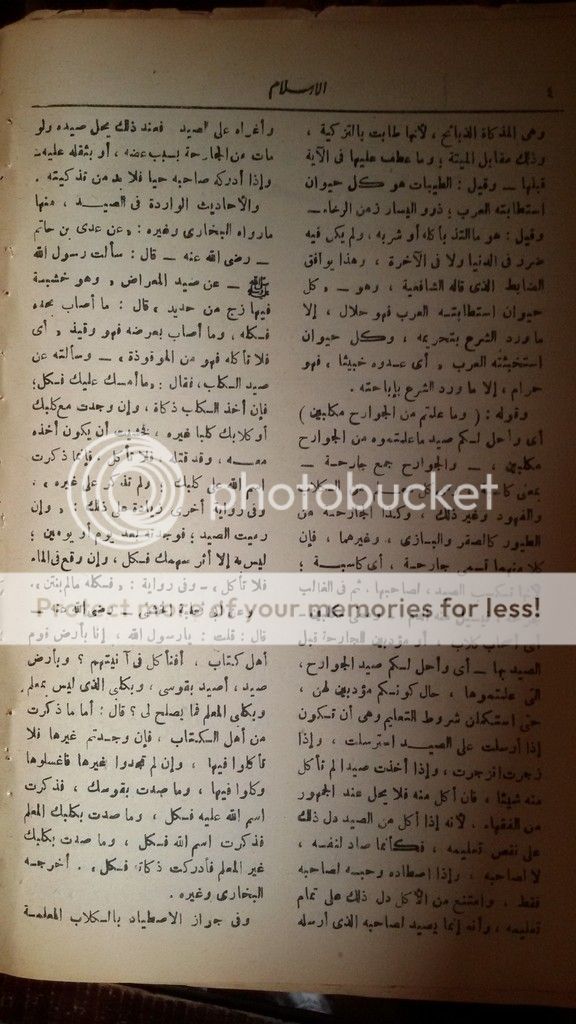 ٤
الإسلام
وهى المذكاة الذبائح ، لأنها طابت بالتزكية ،
وذلك مقابل الميتة ؛ وما عطف عليها فى الآية
قبلها — وقيل : الطيبات هو كل حيوان
استطابته العرب ؛ ذوو اليسار زمن الرخاء —
وقيل : هو ما التذ بأكله أو شربه ، ولم يكن فيه
ضرر فى الدنيا ولا فى الآخرة ، وهذا يوافق
الضابط الذى قاله الشافعية ، وهو — « كل
حيوان استطابته العرب فهو حلال ، إلا
ما ورد الشرع بتحريمه ، وكل حيوان
استخبثته العرب « أى عدوه خبيثا ، فهو
حرام ، إلا ما ورد الشرع بإباحته .
وقوله : ( وما علمتم من الجوارح مكلبين )
أى وأحل لكم صيد ما علمتموه من الجوارح
مكلبين ، — والجوارح جمع جارحة —
بمعنى
والفهود وغير ذلك ، وكذا الجارحة من
الطيور كالصقر والبازى ، وغيرهما ، فإن
كلا منهما تسمى جارحة ، أى كاسبة ؛
لأنها تكسب الصيد لصاحبها ، ثم فى الغالب
أى أصحاب كلاب ، أو مؤدبين للجارحة قبل
الصيد بها — أى وأحل لكم صيد الجوارح ،
التى علمتموها ، حال كونكم مؤدبين لهن ،
حتى استكملن شروط التعليم وهى أن تكون
إذا أرسلت على الصيد استرسلت ، وإذا
زجرت انزجرت ، وإذا أخذت صيدا لم تأكل
منه شيئا ، فان أكل منه فلا يحل عند الجمهور
من الفقهاء . لأنه إذا أكل من الصيد دل ذلك
على نقص تعليمه ، فكأنما صاد لنفسه ،
لا لصاحبه ، وإذا اصطاده وحبسه لصاحبه
فقط ، وامتنع من الأكل دل ذلك على تمام
تعليمه ، وأنه إنما يصيد لصاحبه الذى أرسله
وأغراه على الصيد فعند ذلك يحل صيده ولو
مات من الجارحة بسبب عضه ، أو بثقله عليه .
وإذا أدركه صاحبه حيا فلا بد من تذكيته .
والأحاديث الواردة فى الصيد ، منها
ما رواه البخارى وغيره : « عن عدى بن حاتم
— رضى الله عنه — قال : سألت رسول الله
ﷺ — عن صيد المعراض « وهو خشبة
فيها زج من حديد » قال : ما أصاب بحده
فكله ، وما أصاب بعرضه فهو وقيذ « أى
فلا تأكله فهو من الموقوذة » — وسألته عن
صيد الكلب ، فقال : « ما أمسك عليك فكل ؛
فإن أخذ الكلب ذكاة ، وإن وجدت مع كلبك
أو كلابك كلبا غيره ، فخشيت أن يكون أخذه
معه ، وقد قتله فلا تأكل ، فإنما ذكرت
اسم الله على كلبك ، ولم تذكره على غيره » .
وفى رواية أخرى زيادة على ذلك : « وإن
رميت الصيد ؛ فوجدته بعد يوم أو يومين ؛
ليس به إلا أثر سهمك فكل ، وإن وقع فى الماء
فلا تأكل » — وفى رواية : « فكله ما لم ينتن » .
رضى الله عنه —
قال : قلت : يا رسول الله ، إنا بأرض قوم
أهل كتاب ، أفنأكل فى آنيتهم ؟ وبأرض
صيد ، أصيد بقوسى ، وبكلبى الذى ليس بمعلم
وبكلبى المعلم فما يصلح لى ؟ قال : أما ما ذكرت
من أهل الكتاب ، فإن وجدتم غيرها فلا
تأكلوا فيها ، وإن لم تجدوا غيرها فاغسلوها
وكلوا فيها ، وما صدت بقوسك ، فذكرت
اسم الله عليه فكل ، وما صدت بكلبك المعلم
فذكرت اسم الله فكل ، وما صدت بكلبك
غير المعلم فأدركت ذكاته فكل » . أخرجه
البخارى وغيره .
وفى جواز الاصطياد بالكلاب المعلمة
photobucket
Protect more of your memories for less!